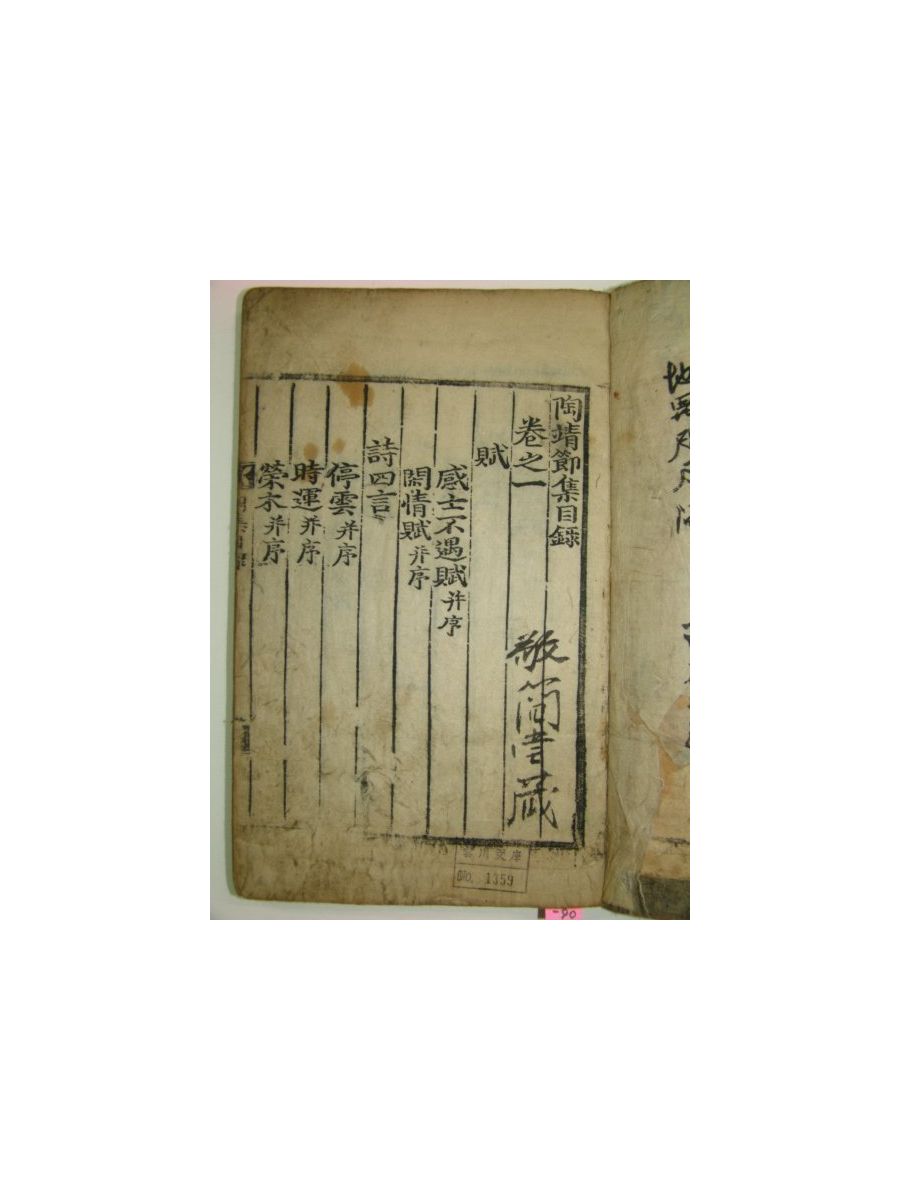 陶靖節集目錄
卷之一
賦
感士不遇賦并序
閑情賦并序
詩四言
停雲并序
時運并序
榮木并序
敬簡堂藏
No. 1359
-90